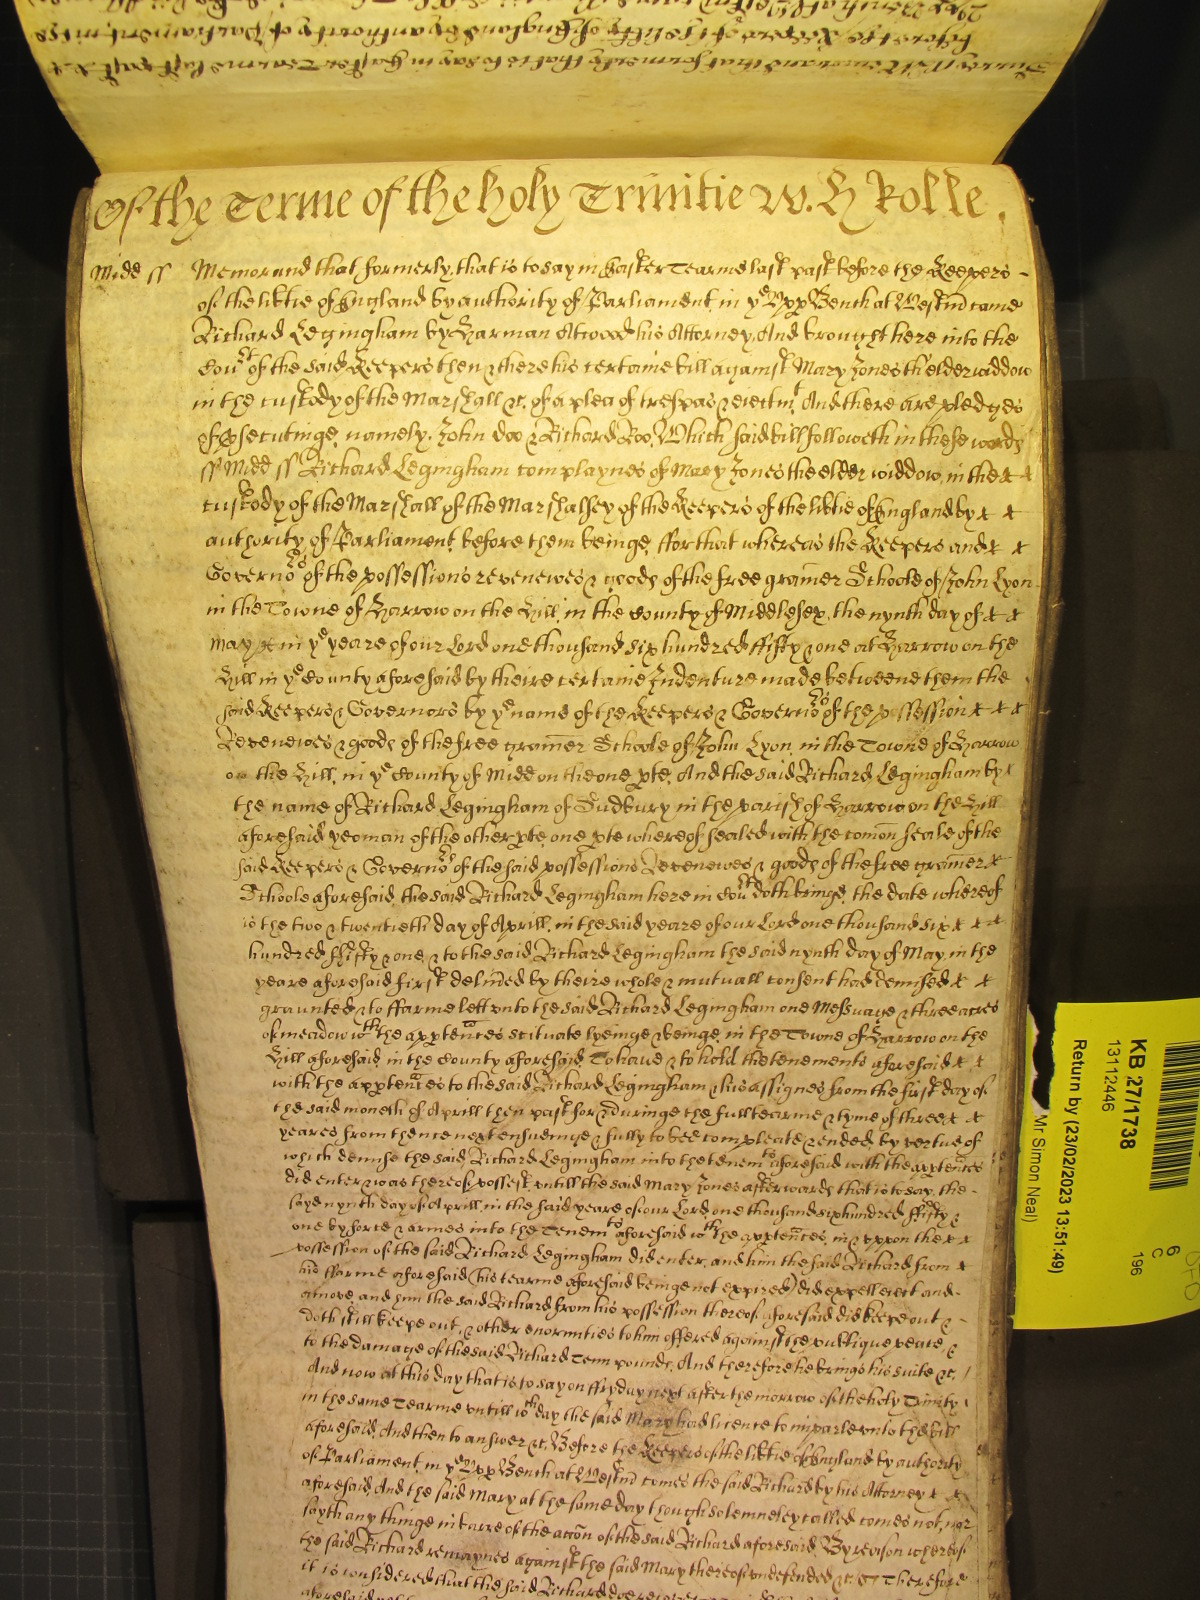 Of the Terme of the holy Trinitie W. H Rolle.
Midd ss Memorand that formerly, that is to say in Easter Tearme last past before the Keepers
of the libtie of England by authority of Parliament in ye Vpp Bench at Westm came
Richard Legingham by Harman Atwood his Attorney, And brought here into the
Court of the said Keepers then & there his certaine bill against Mary Jones thelder widdow
in the custody of the Marshall &c. of a plea of trespas & eiectmt And there are pledges
of psecutinge, namely, John doo & Richard Roo, Which said bill followeth in these words
ss Midd ss Richard Legingham complaynes of Mary Jones the elder widdow, in the
custody of the Marshall of the Marshalsey of the Keepers of the libtie of England by
authority of Parliament before them beinge, ffor that whereas the Keepers and
Governors of the possessions revenewes & goods of the free gramer Schoole of John Lyon
in the Towne of Harrow on the Hill, in the County of Middlesex, the nynth day of
may in ye yeare of our Lord one thousand six hundred ffifty & one at Harrow on the
Hill in ye County aforesaid by theire certaine Indenture made betweene them the
said Keepers & Governors by ye name of the Keepers & Governors of the possession
Revenewes & goods of the free gramer Schoole of John Lyon, in the Towne of Harrow
on the Hill, in ye County of Midd on the one pte, And the said Richard Legingham by
the name of Richard Legingham of Sudbury in the parish of Harrow on the Hill
aforesaid yeoman of the other pte, one pte whereof sealed with the comon seale of the
said Keepers & Governors of the said possessions Revenewes & goods of the free gramer
Schoole aforesaid, the said Richard Legingham here in Court doth bringe, the date whereof
is the two & twentieth day of Aprill, in the said yeare of our Lord one thousand six
hundred ffifty & one & to the said Richard Legingham the said nynth day of May, in the
yeare aforesaid first delived by theire whole & mutuall consent had demised
graunted & to ffarme lett vnto the said Richard Legingham one Messuage & three acres
of meadow wth the apptences scituate lyeinge & beinge, in the Towne of Harrow on the
Hill aforesaid, in the County aforesaid, To haue & to hold the tenements aforesaid
with the apptences to the said Richard Legingham & his assignes from the first day of
the said moneth of Aprill then past for & duringe the full tearme & tyme of three
yeares from thence next ensueinge & fully to bee compleate & ended, by vertue of
which demise the said Richard Legingham into the tenemts aforesaid with the apptences
did enter & was thereof possest, vntill the said Mary Jones afterwards that is to say, the
sayd nynth day of Aprill, in the said yeare of our Lord, one thousand six hundred ffifty &
one by force & armes into the Tenemts aforesaid wth the apptences, in & vppon the
possession of the said Richard Legingham did enter, and him the said Richard from
his ffarme aforesaid (his tearme aforesaid beinge not expired) did expell eiect and
amove, and him the said Richard from his possession thereof aforesaid did keepe out &
doth still keepe out, & other enormities to him offered against the publique peace, &
to the damage of the said Richard Tenn pounds, And therefore he brings his suite &c.
And now at this day that is to say on ffryday next after the morrow of the holy Trinity
in the same Tearme vntill wch day the said Mary had licence to imparle vnto the bill
aforesaid, And then to answer &c. Before the Keepers of the libtie of England by authority
of Parliament in ye Vpp Bench at Westm comes the said Richard by his Attorney
aforesaid, And the said Mary at the same day though solemneley called comes not, nor
sayth any thinge in barre of the accon of the said Richard aforesaid, By reason whereof
the said Richard remaynes against the said Mary thereof vndefended &c. Therefore
it is considered that the said Richard doe
aforesaid
KB 27/1738
13112446
Return by (23/02/2023 13:51:49)
Mr Simon Neal)
6
C
196